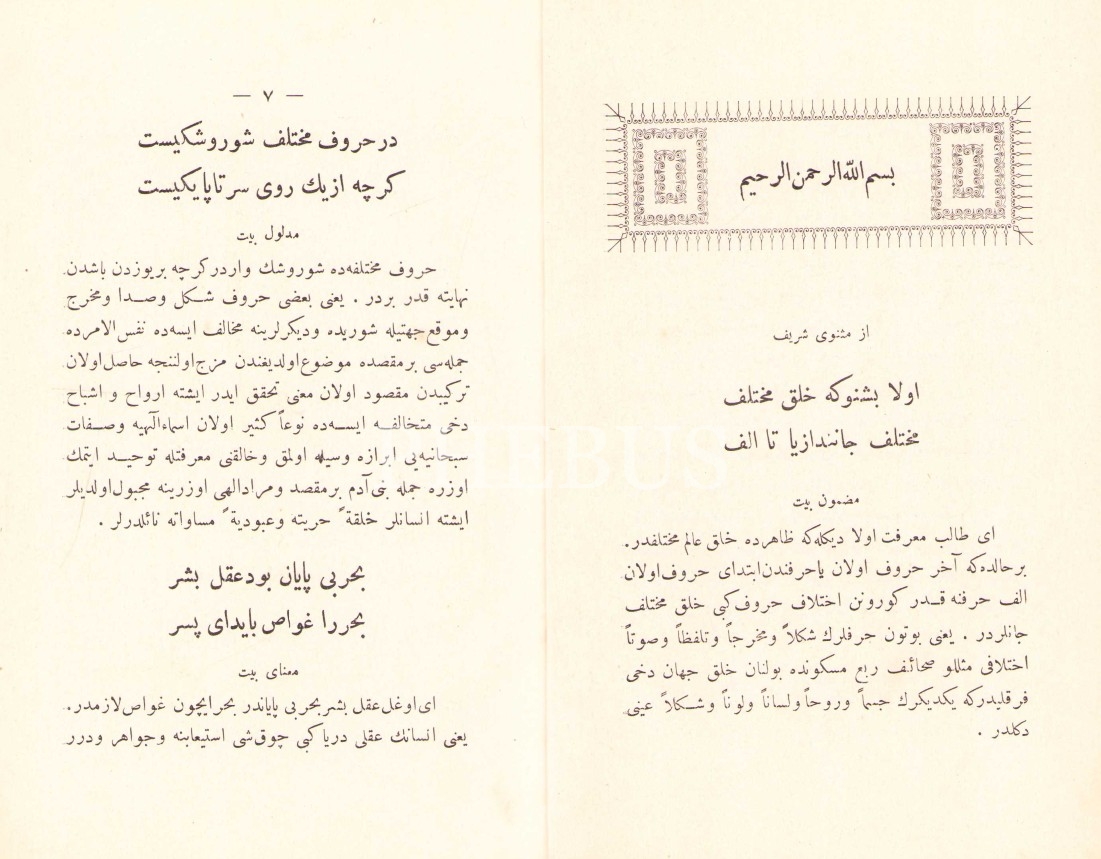 بسم اللّه الرحمن الرحيم
از مثنوی شریف
اولا بشنوکه خلق مختلف
مختلف جانندازیا تا الف
مضمون بیت
ای طالب معرفت اولا دیکله‌که ظاهرده خلق عالم مختلفدر.
برحالده‌که آخر حروف اولان یاحرفندن‌ابتدای حروف‌اولان
الف حرفنه قـدر کورونن اختلاف حروف‌کبی خلق مختلف
جانلردر . یعنی بوتون حرفلرك شکلاً ومخرجاً وتلفظاً وصوتاً
اختلافی مثللو صحائف ربع مسکونده بولنان خلق جهان دخی
فرقلیدرکه یکدیکرك جسماً وروحاً ولساناً ولوناً وشـکلاً عینی
دکلدر .
— ٧ —
درحروف مختلف شوروشکیست
کرچه ازیك روی سرتاپایکیست
مدلول بیت
حروف مختلفه‌ده شوروشك واردرکرچه بریوزدن باشدن
نهایته قدر بردر . یعنی بعضی حروف شـکل وصـدا ومخرج
وموقع‌جهتیله شوریده ودیکرلرینه مخالف ایسه‌ده نفس‌الامرده
جمله‌سی برمقصده موضوع‌اولدیغندن مزج‌اولننجه حاصل‌اولان
ترکیبدن مقصود اولان معنی تحقق ایدر ایشته ارواح و اشباح
دخی متخالفـه ایسـه‌ده نوعاً کثیر اولان اسماءآلهیه وصـفات
سبحانیه‌یی ابرازه وسیله اولمق وخالقنی معرفتله توحیـد ایتمك
اوزره جمله بنی‌آدم برمقصد ومرادالهی اوزرینه مجبول‌اولدیلر
ایشته انسانلر خلقةً حریته وعبودیةً مساواته نائلدرلر .
بحربی پایان بودعقل بشر
بحررا غواص بایدای پسر
معنای بیت
ای‌اوغل‌عقل بشربحربی پایاندر بحرایچون غواص‌لازمدر.
یعنی انسانك عقلی دریاکبی چوق‌شی استیعابنه وجواهر ودرر
PHEBUS